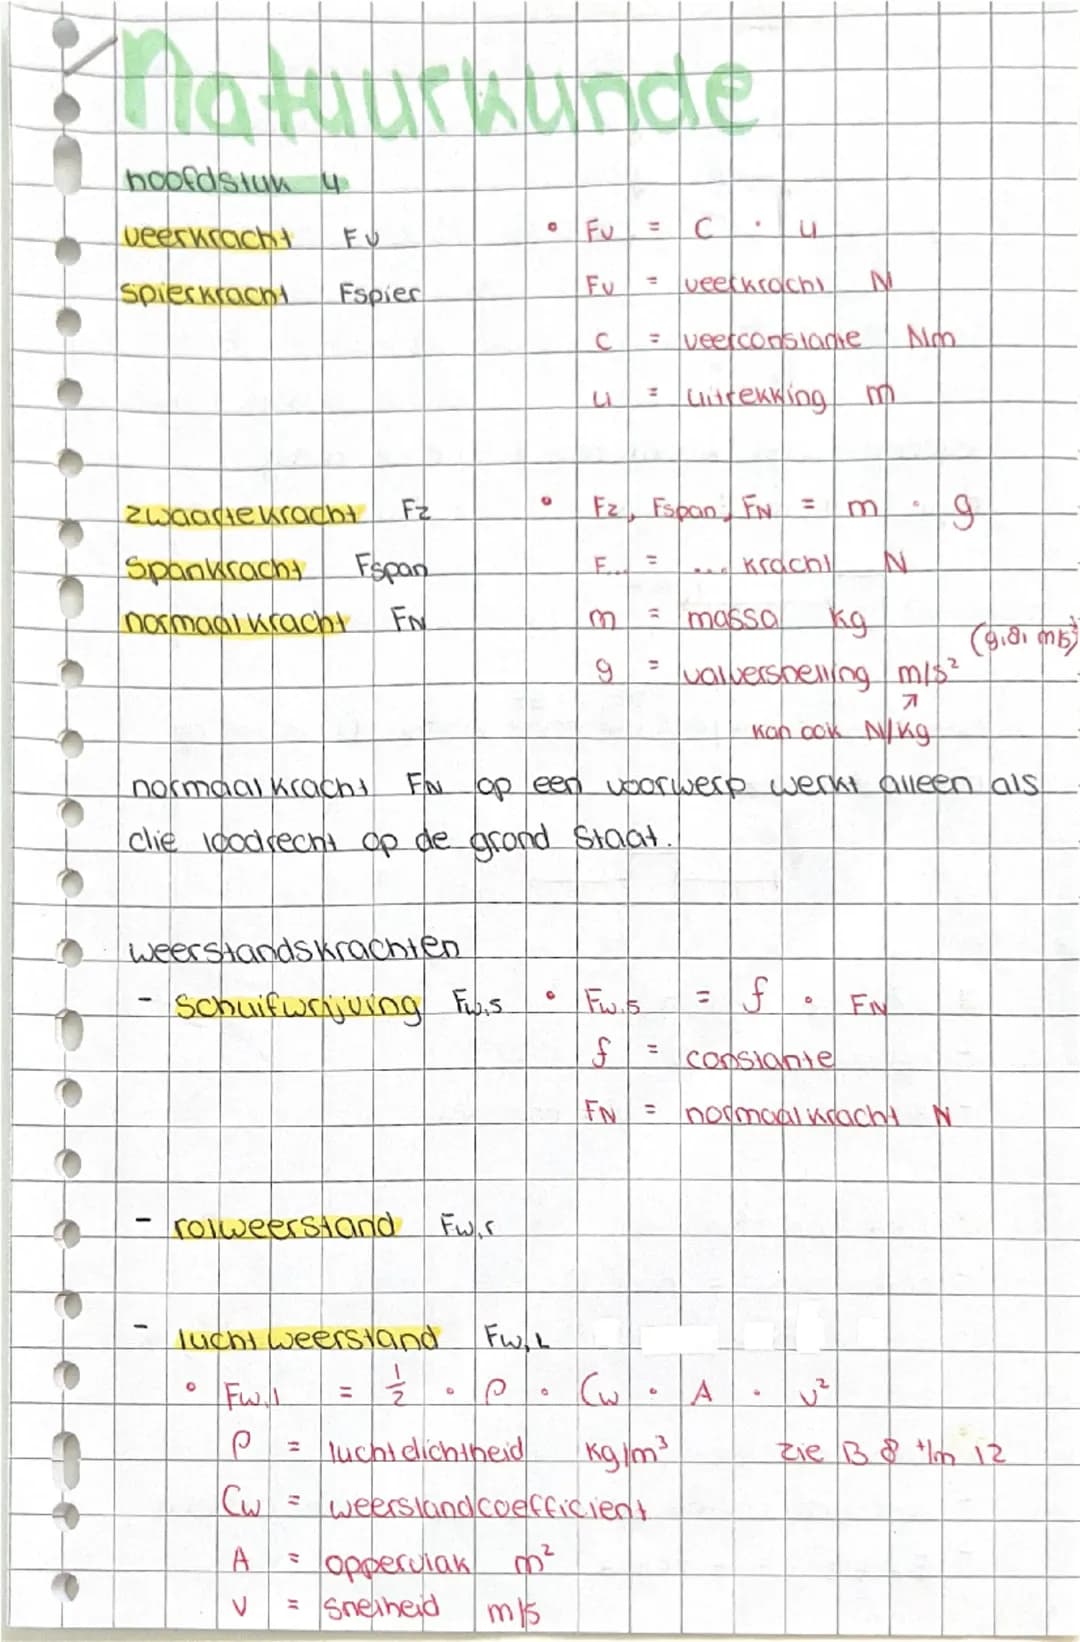 Natuurkunde
hoofdstuk 4
veerkracht Fv • Fv = C · u
spierkracht Fspier Fv = veerkracht N
C = veerconstante N/m
u = uitrekking m
zwaartekracht Fz • Fz, Fspan, FN = m · g
Spankracht Fspan F... = ... kracht N
normaalkracht FN m = massa kg
g = valversnelling m/s² (9,81 m/s²)
↗
kan ook N/kg
normaalkracht FN op een voorwerp werkt alleen als
die loodrecht op de grond staat.
weerstandskrachten
- Schuifwrijving Fw,s • Fw,s = f · FN
f = constante
FN = normaalkracht N
- rolweerstand Fw,r
- luchtweerstand Fw,L
• Fw,l = ½ · ρ · Cw · A · v²
ρ = luchtdichtheid kg/m³ zie B 8 t/m 12
Cw = weerstandcoefficient
A = oppervlak m²
v = snelheid m/s